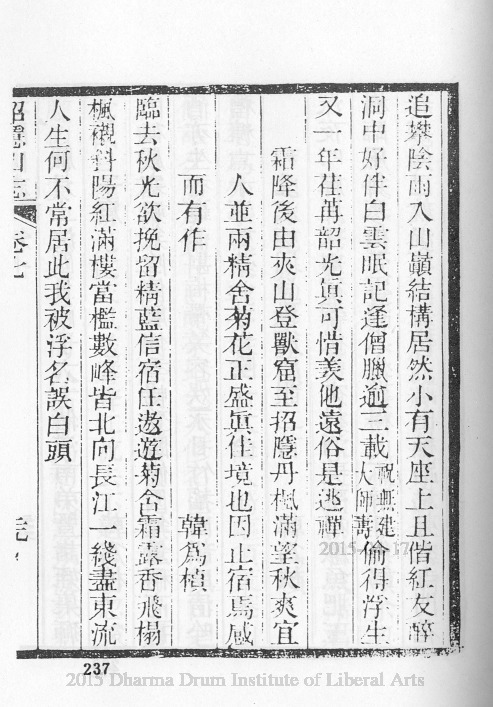 追攀陰雨入山巔結構居然小有天座上且偕紅友醉
洞中好伴白雲眠記逢僧臘逾三載祝無建大師壽偷得浮生
又一年荏苒韶光眞可惜羨他遠俗是逃禪
霜降後由夾山登獸窟至招隱丹楓滿望秋爽宜
人並兩精舍菊花正盛眞佳境也因止宿焉感
而有作　韓爲楨
臨去秋光欲挽留精藍信宿任遨遊菊含霜露香飛榻
楓襯斜陽紅滿樓當檻數峰皆北向長江一綫盡東流
人生何不常居此我被浮名誤白頭
招隱山志　卷七
237
2015 Dharma Drum Institute of Liberal Arts